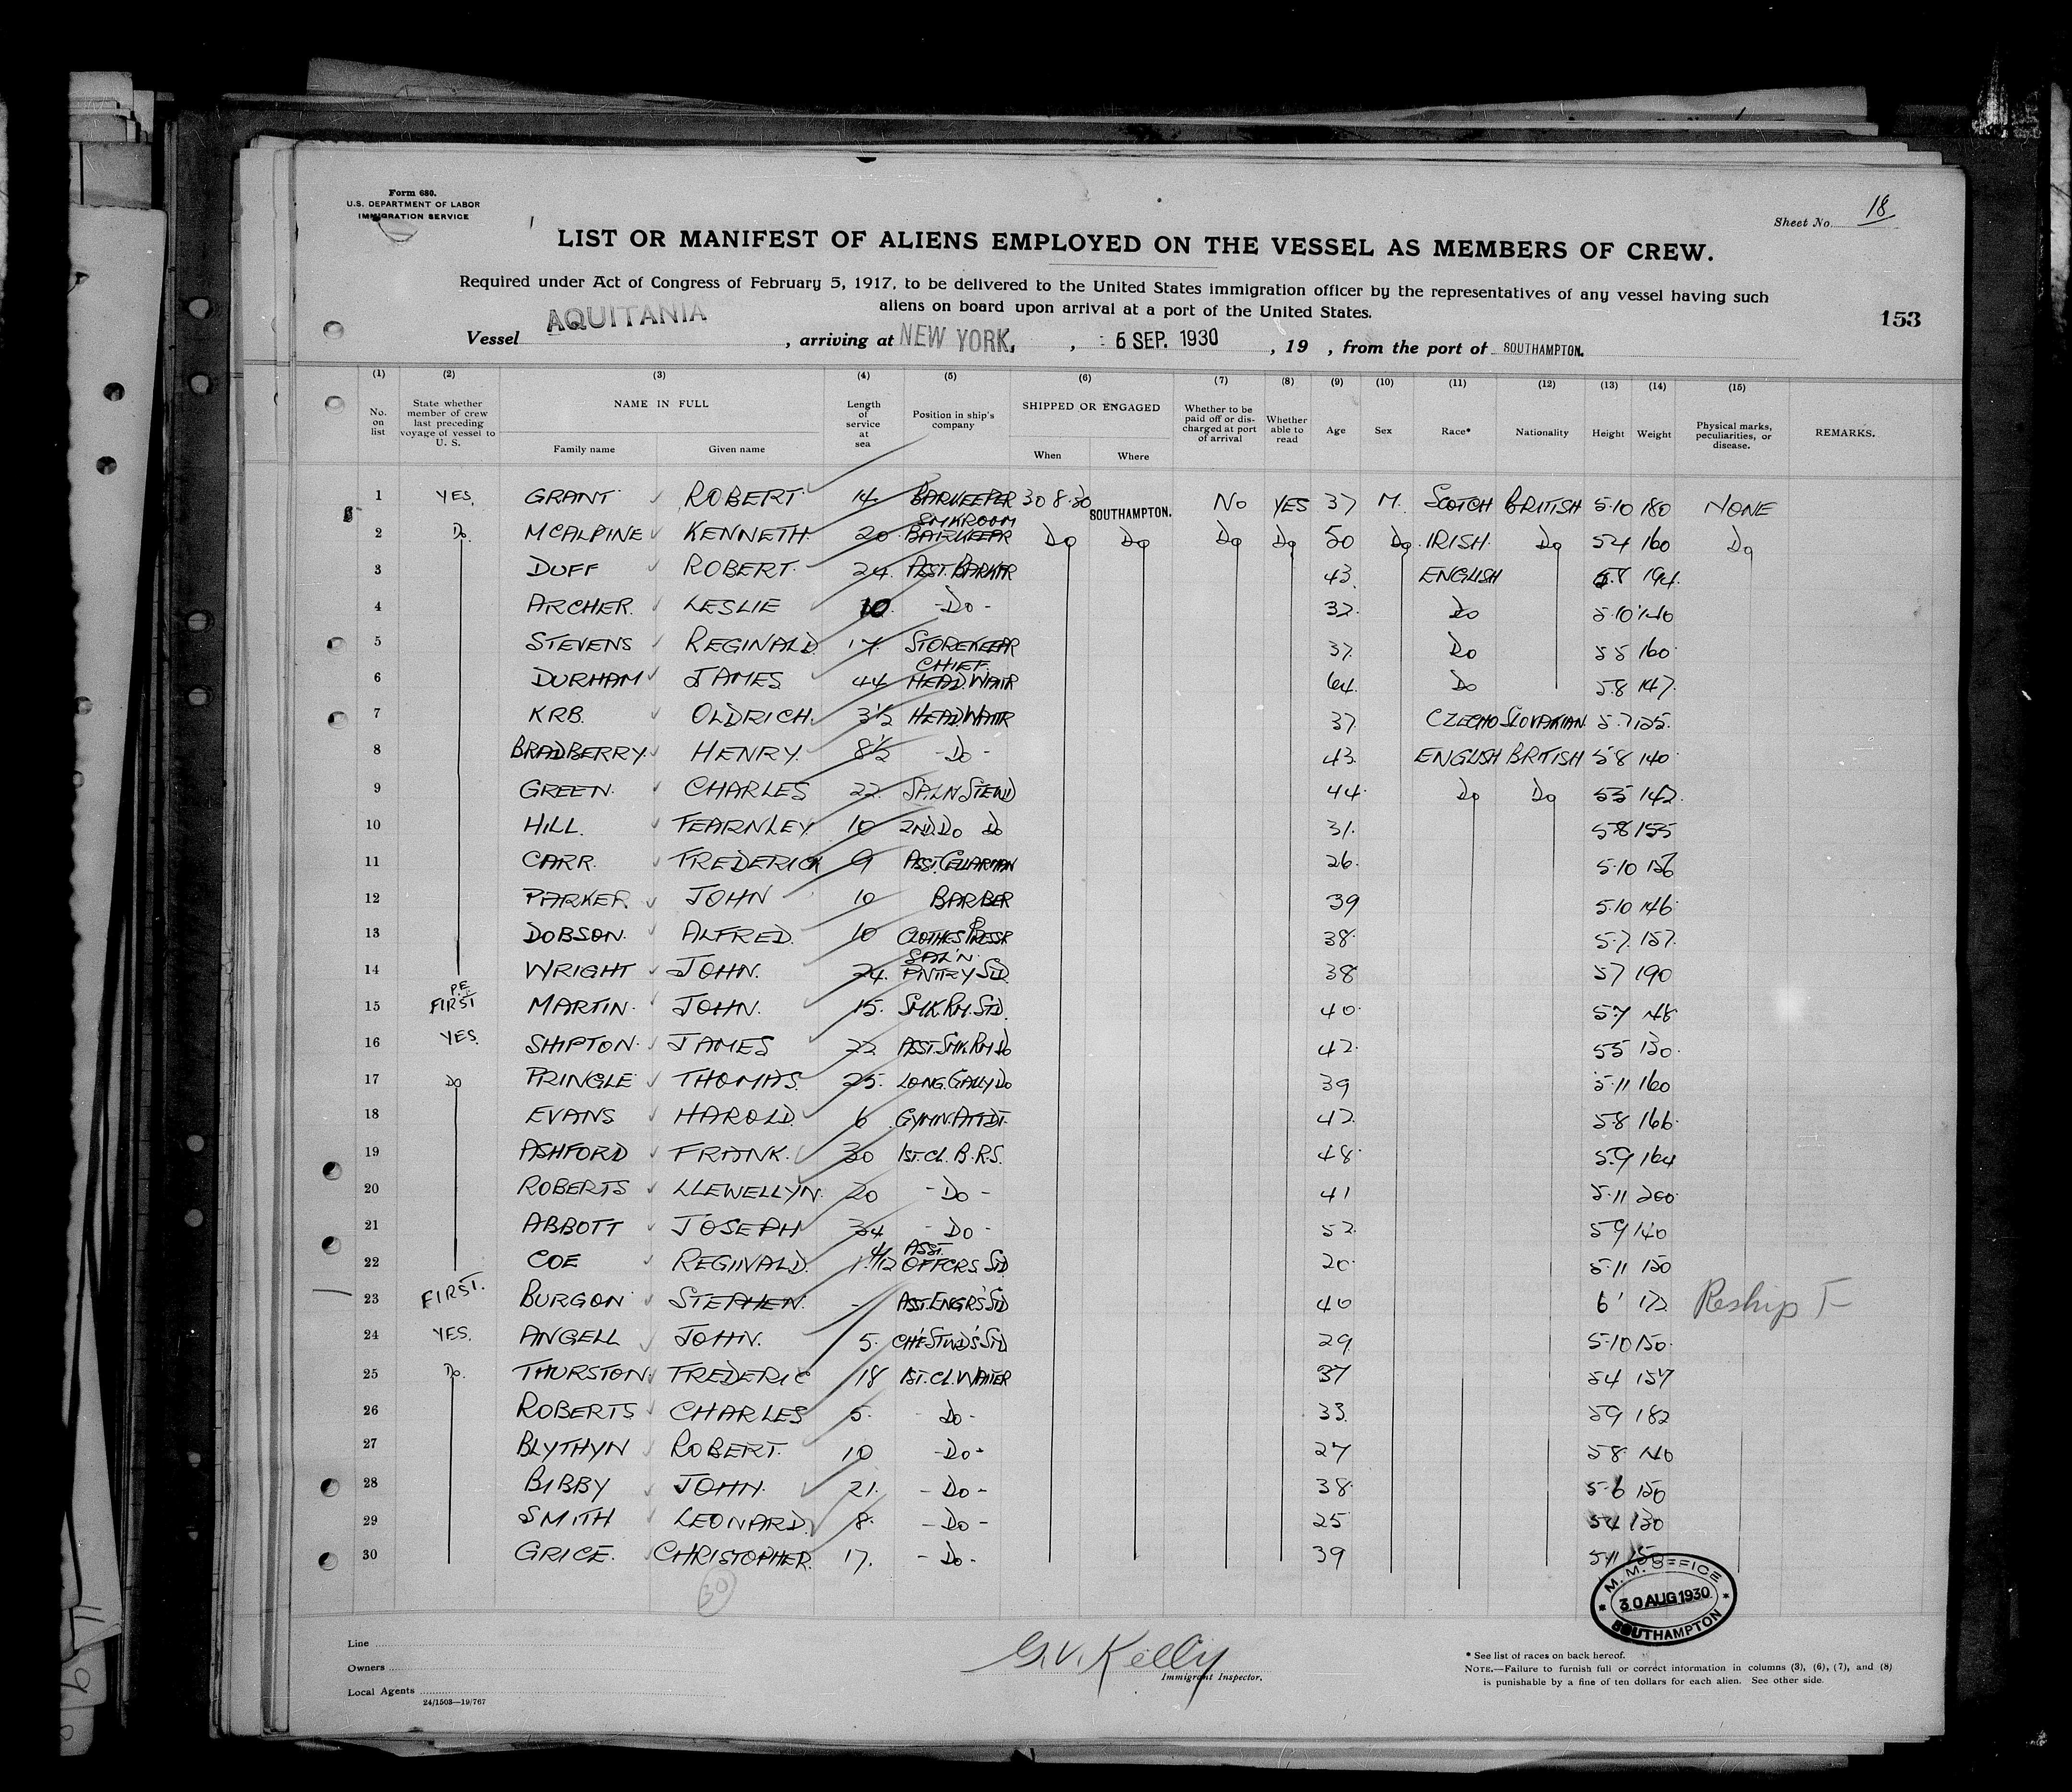 Form 680.
U.S. DEPARTMENT OF LABOR
IMMIGRATION SERVICE
Sheet No. 18
LIST OR MANIFEST OF ALIENS EMPLOYED ON THE VESSEL AS MEMBERS OF CREW.
Required under Act of Congress of February 5, 1917, to be delivered to the United States immigration officer by the representatives of any vessel having such
aliens on board upon arrival at a port of the United States.
153
Vessel AQUITANIA, arriving at NEW YORK, , 6 SEP. 1930, 19 , from the port of SOUTHAMPTON.
(1) (2) (3) (4) (5) (6) (7) (8) (9) (10) (11) (12) (13) (14) (15)
No. on list State whether member of crew last preceding voyage of vessel to U. S. NAME IN FULL Family name Given name Length of service at sea Position in ship's company SHIPPED OR ENGAGED When Where Whether to be paid off or discharged at port of arrival Whether able to read Age Sex Race* Nationality Height Weight Physical marks, peculiarities, or disease. REMARKS.
1 YES. GRANT ROBERT 14 BARKEEPER 30 8 30 SOUTHAMPTON. NO YES 37 M. SCOTCH BRITISH 5.10 180 NONE
2 Do. MCALPINE KENNETH 20 SMKROOM BARKEEPR Do Do Do Do 50 Do IRISH Do 5 4 160 Do
3 DUFF ROBERT 24 ASST. BARKPR 43 ENGLISH 5.8 194
4 ARCHER. LESLIE 10 -Do- 32. Do 5.10 140
5 STEVENS REGINALD 17 STOREKEEPR 37 Do 5 5 160
6 DURHAM JAMES 44 CHIEF HEAD WAITR 64 Do 5.8 147
7 KRB. OLDRICH. 3½ HEAD WAITR 37 CZECHO SLOVAKIAN 5.7 125
8 BRADBERRY HENRY 8½ -Do- 43 ENGLISH BRITISH 5 8 140
9 GREEN CHARLES 22 SALN STEWD 44 Do Do 5 5 142
10 HILL. FEARNLEY 10 2ND Do Do 31. 5 8 155
11 CARR. FREDERICK 9 ASST. CELLARMAN 26 5.10
12 PARKER JOHN 10 BARBER 39 5.10 146
13 DOBSON ALFRED. 10 CLOTHES PRESSR 38 5.7. 157
14 WRIGHT JOHN. 24. SAL'N PNTRY STD 38 5 7 190
15 P.E. FIRST MARTIN JOHN. 15. SMK. RM. STD. 40 5.7
16 YES. SHIPTON JAMES 22 ASST. SMK. RM Do 42. 5 5 130
17 Do PRINGLE THOMAS 25. LONG. GALLY Do 39 5.11 160
18 EVANS HAROLD. 6 GYMN. ATTDT. 42 5.8 166
19 ASHFORD FRANK. 30 1ST. CL. B.R.S. 48 5.9 164
20 ROBERTS LLEWELLYN 20 -Do- 41 5.11 200
21 ABBOTT JOSEPH 34 -Do- 52 5 9 140
22 COE REGINALD. 1 4/12 ASST. OFFCRS. STD 20 5.11 150
23 FIRST. BURGON STEPHEN. - ASST. ENGRS' STD 40 6' 172 Reship F
24 YES. ANGELL JOHN. 5. CH'F STWDS' STD 29 5.10 150
25 Do. THURSTON FREDERIC 18 1ST. CL. WAITER 37 5 4 157
26 ROBERTS CHARLES 5. -Do- 33. 5 9 182
27 BLYTHYN ROBERT 10 -Do- 27 5 8 140
28 BIBBY JOHN 21. -Do- 38 5.6 150
29 SMITH LEONARD. 8. -Do- 25 5 4 130
30 GRICE. CHRISTOPHER. 17. -Do- 39 5.11
30
M. M. OFFICE
30 AUG 1930
SOUTHAMPTON
Line
Owners
Local Agents
24/1503—19/767
G. V. Kelly
Immigrant Inspector.
* See list of races on back hereof.
NOTE.—Failure to furnish full or correct information in columns (3), (6), (7), and (8)
is punishable by a fine of ten dollars for each alien. See other side.